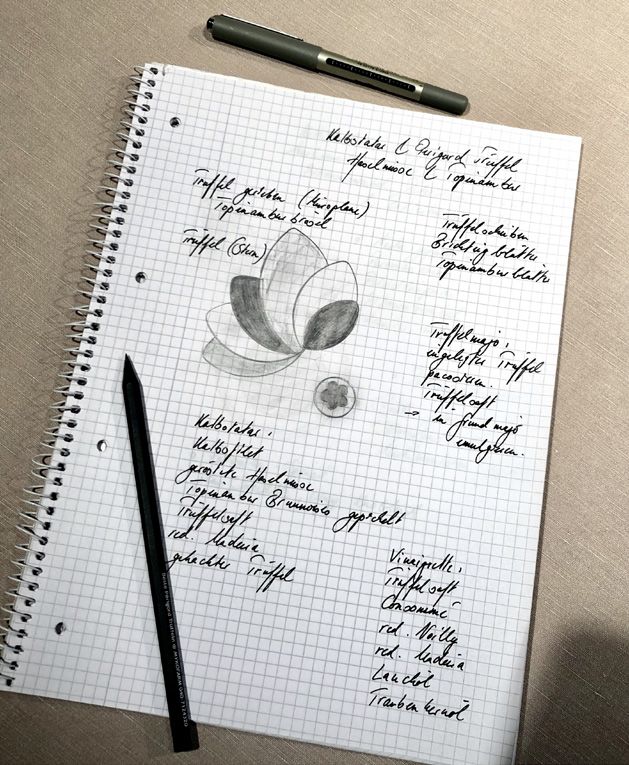 Kalbstatar & Perigord Trüffel
Haselnüsse & Topinambur
Trüffel gerieben (Microplane)
Topinamburbrösel
Trüffel (Stern)
Trüffelscheiben
Brickteigblätter
Topinamburblätter
Trüffelmajo:
eingelegter Trüffel
pacossieren.
Trüffelsaft
→ in Grundmajo
emulgieren.
Kalbstatar:
Kalbsfilet
geröstete Haselnüsse
Topinambur Brunnoises gepickelt
Trüffelsaft
red. Madeira
gehackter Trüffel
Vinaigrette:
Trüffelsaft
Consommé
red. Noilly
red. Madeira
Lauchöl
Traubenkernöl